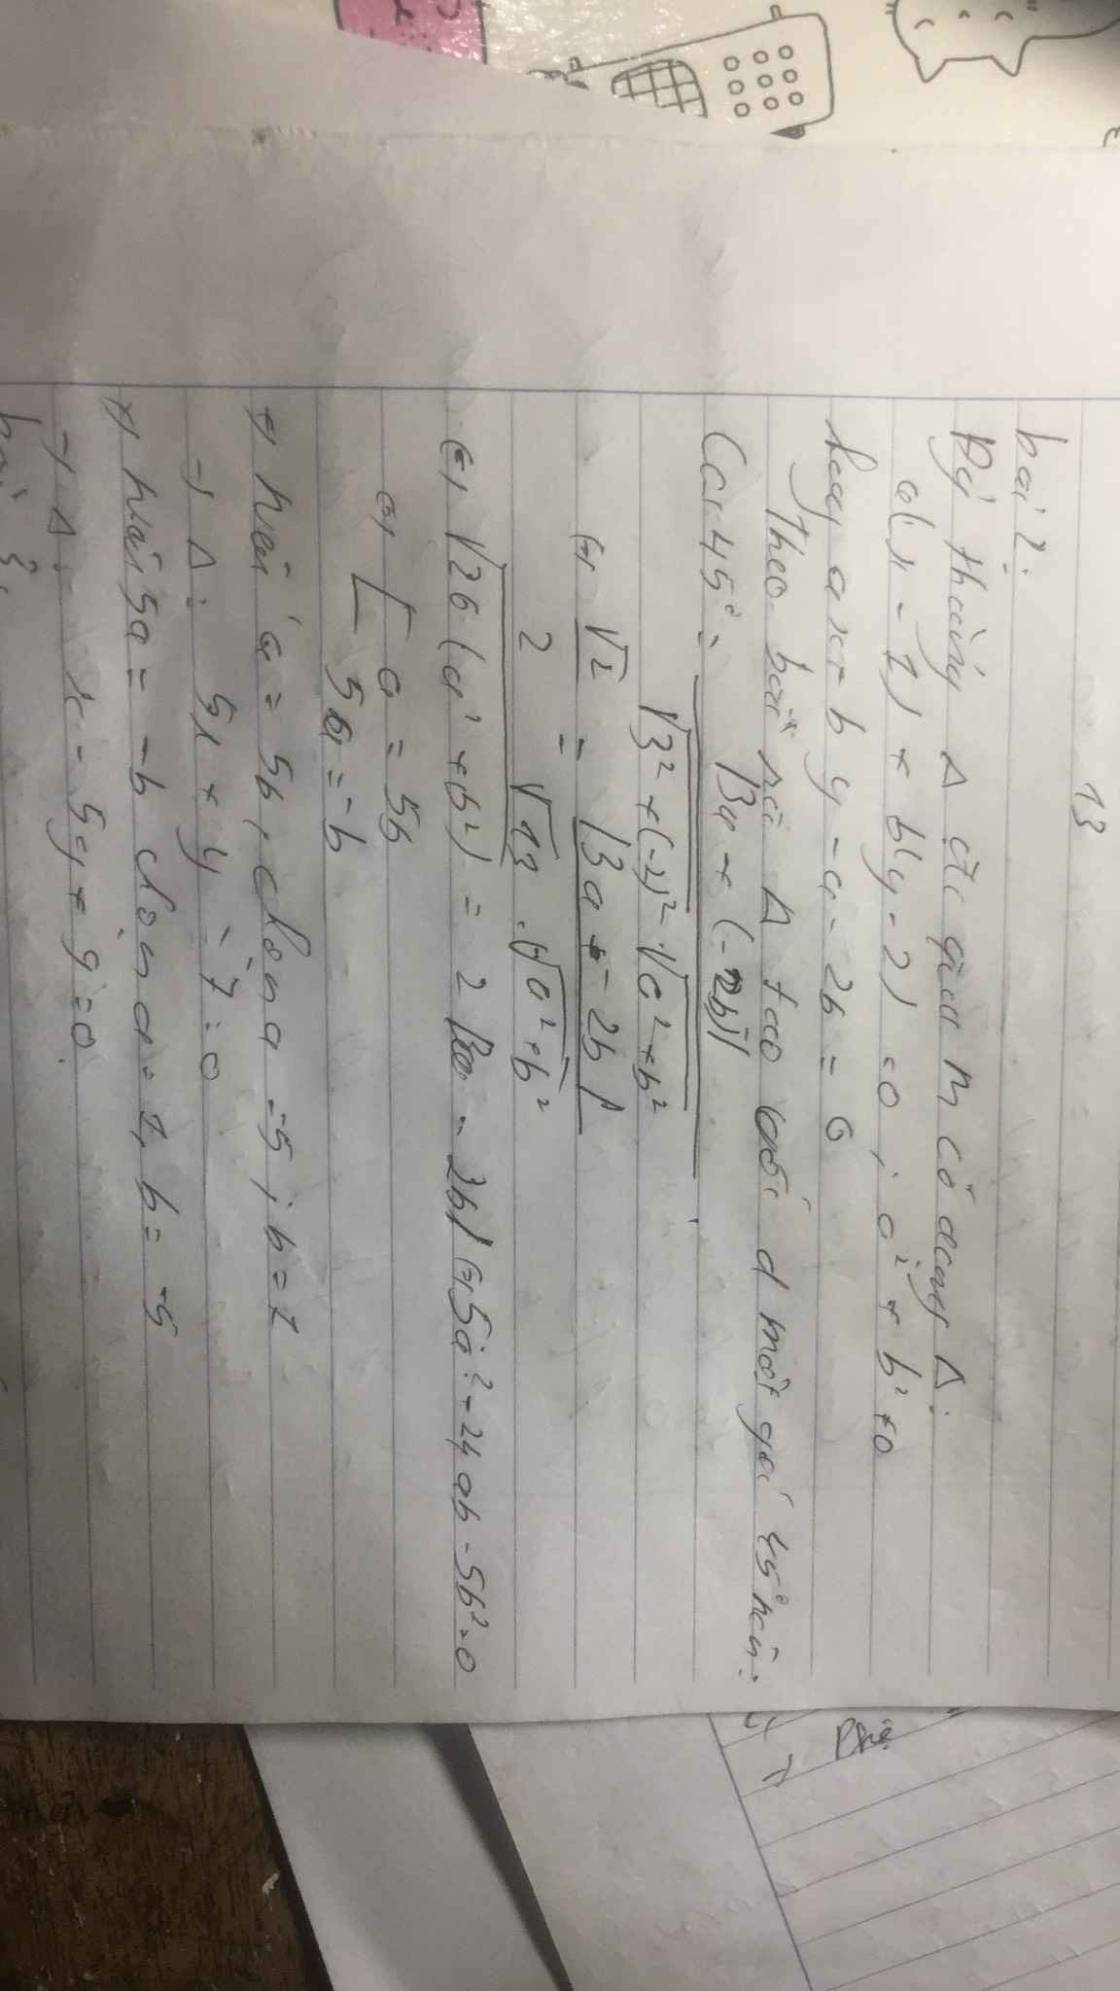 13
bài 2:
Đg thẳng Δ đi qua M có dạng Δ:
a(x - 1) + b(y - 2) = 0 ; a² + b² ≠ 0
hay ax + by - a - 2b = 0
Theo bài ra Δ tạo với d một góc 45° nên:
Cos 45° = |3a + (-2b)| / √3² + (-2)² . √a² + b²
⇔ √2 / 2 = |3a - 2b| / √13 . √a² + b²
⇔ √26(a² + b²) = 2|3a - 2b| ⇔ 5a² - 24ab - 5b² = 0
⇔ [ a = 5b
5a = -b
+) Nếu a = 5b, chọn a = 5 ; b = 1
→ Δ: 5x + y - 7 = 0
+) Nếu 5a = -b chọn a = 1, b = -5
→ Δ: x - 5y + 9 = 0